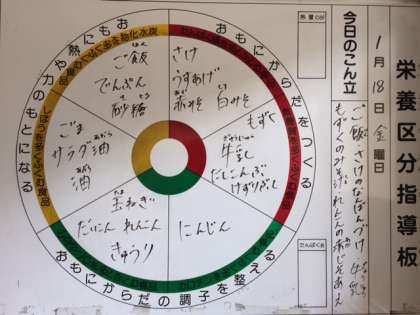 栄養区分指導板
1月18日金曜日
今日のこん立
ご飯 さけのなんばんづけ 牛乳
もずくのみそ汁 れんこんの梅じそあえ
熱量(kcal)
たんぱく(g)
おもにからだをつくる
おもにからだの調子を整える
おもに熱や力のもとになる
さけ
うすあげ
赤みそ 白みそ
もずく
ぎゅうにゅう
牛乳
だしこんぶ
けずりぶし
にんじん
たま
玉ねぎ
だいこん れんこん
きゅうり
ごま
サラダ油
油
はん
ご飯
でんぷん
さとう
砂糖